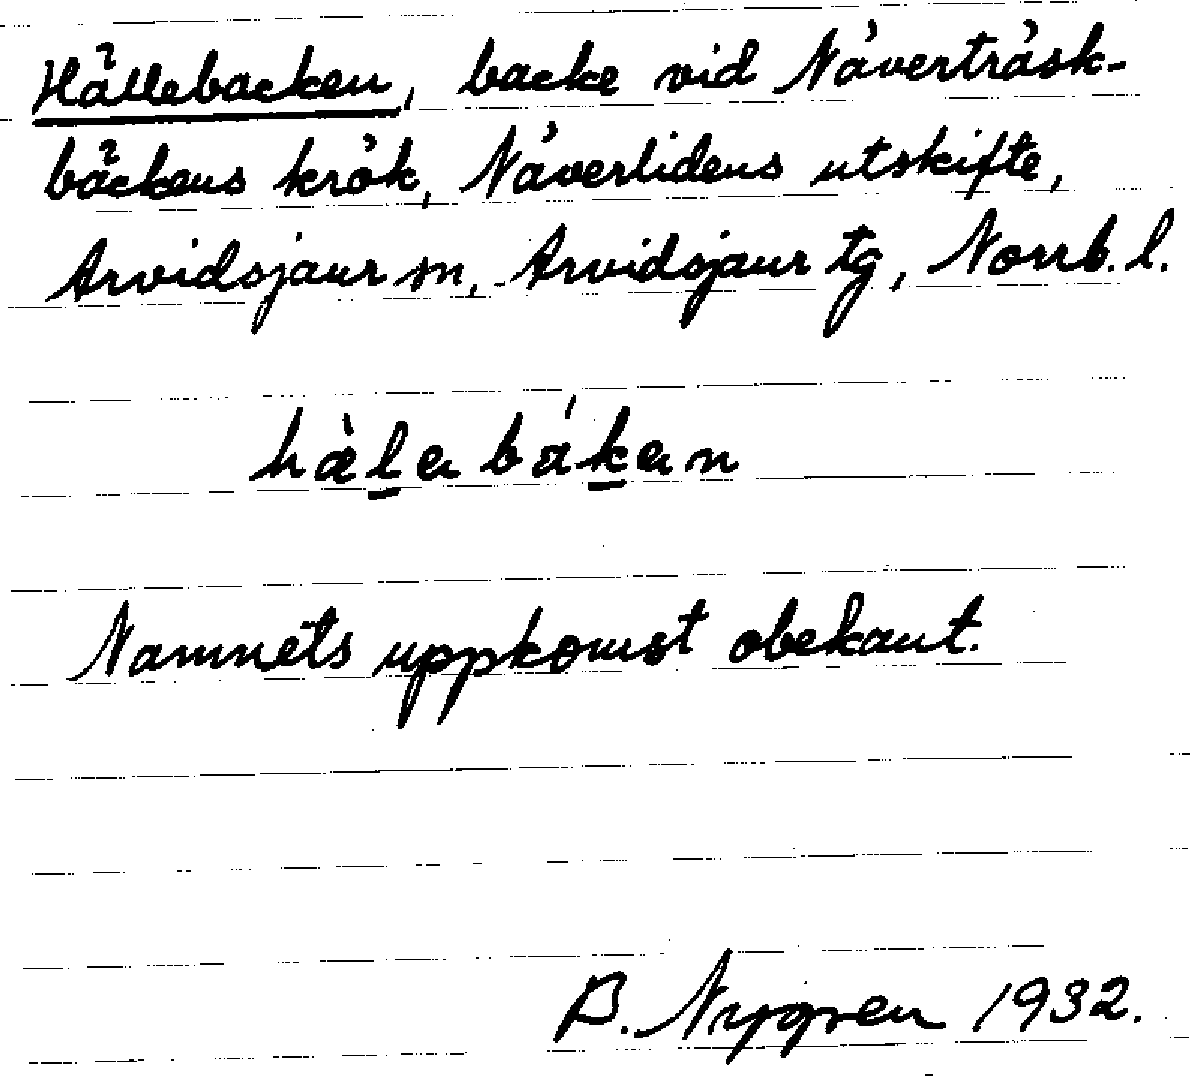 Hällebacken, backe vid Näverträsk-
bäckens krök, Näverlidens utskifte,
Arvidsjaur sn, Arvidsjaur tg, Norrb. l.
hæ̀lebáken
Namnets uppkomst obekant.
B. Nygren 1932.